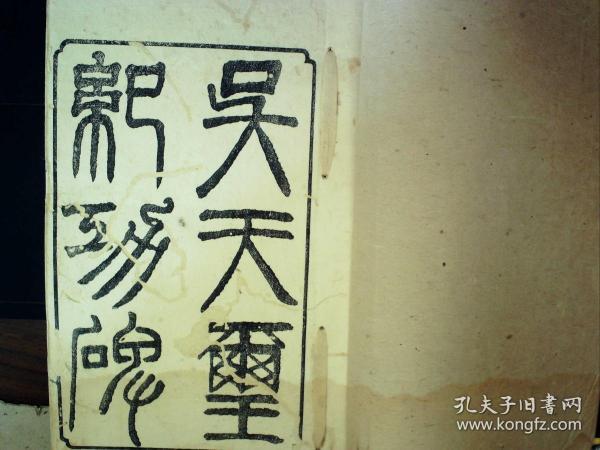 吳天璽
紀功碑
孔夫子旧書网
www.kongfz.com